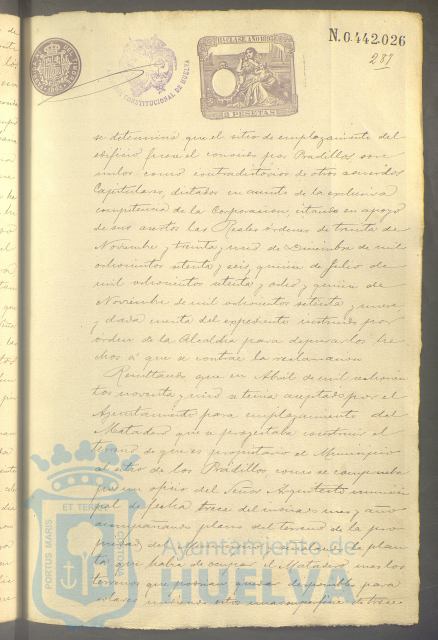 N. 0.442.026
287
CONSTITUCIONAL DE HUELVA
2 PESETAS
se determina que el sitio de emplazamiento del
edificio fuera el conocido por Pradillos son
nulos como contradictorios de otros acuerdos
Capitulares, dictados en asunto de la exclusiva
competencia de la Corporacion, citando en apoyo
de sus asertos las Reales órdenes de treinta de
Noviembre y treinta y uno de Diciembre de mil
ochocientos setenta y seis, quince de Julio de
mil ochocientos setenta y ocho y quince de
Noviembre de mil ochocientos setenta y nueve
y dada cuenta del expediente instruido por
orden de la Alcaldia para depurar los he
chos á que se contrae la reclamacion
Resultando que en Abril de mil ochocien
tos noventa y uno se tenia aceptado por el
Ayuntamiento para emplazamiento del
Matadero que se proyectaba construir el
terreno de que es propietario el Municipio
al sitio de los Pradillos como se comprueba
por un oficio del Señor Arquitecto munici
pal de fecha trece del mismo mes y año
acompañando plano del terreno de la pro
piedad del Municipio
que habia de ocupar el Matadero
terrenos que podrian quedar disponibles para
solares
PORTUS MARIS
ET TERRAE
CUSTODIA
Ayuntamiento de
HUELVA